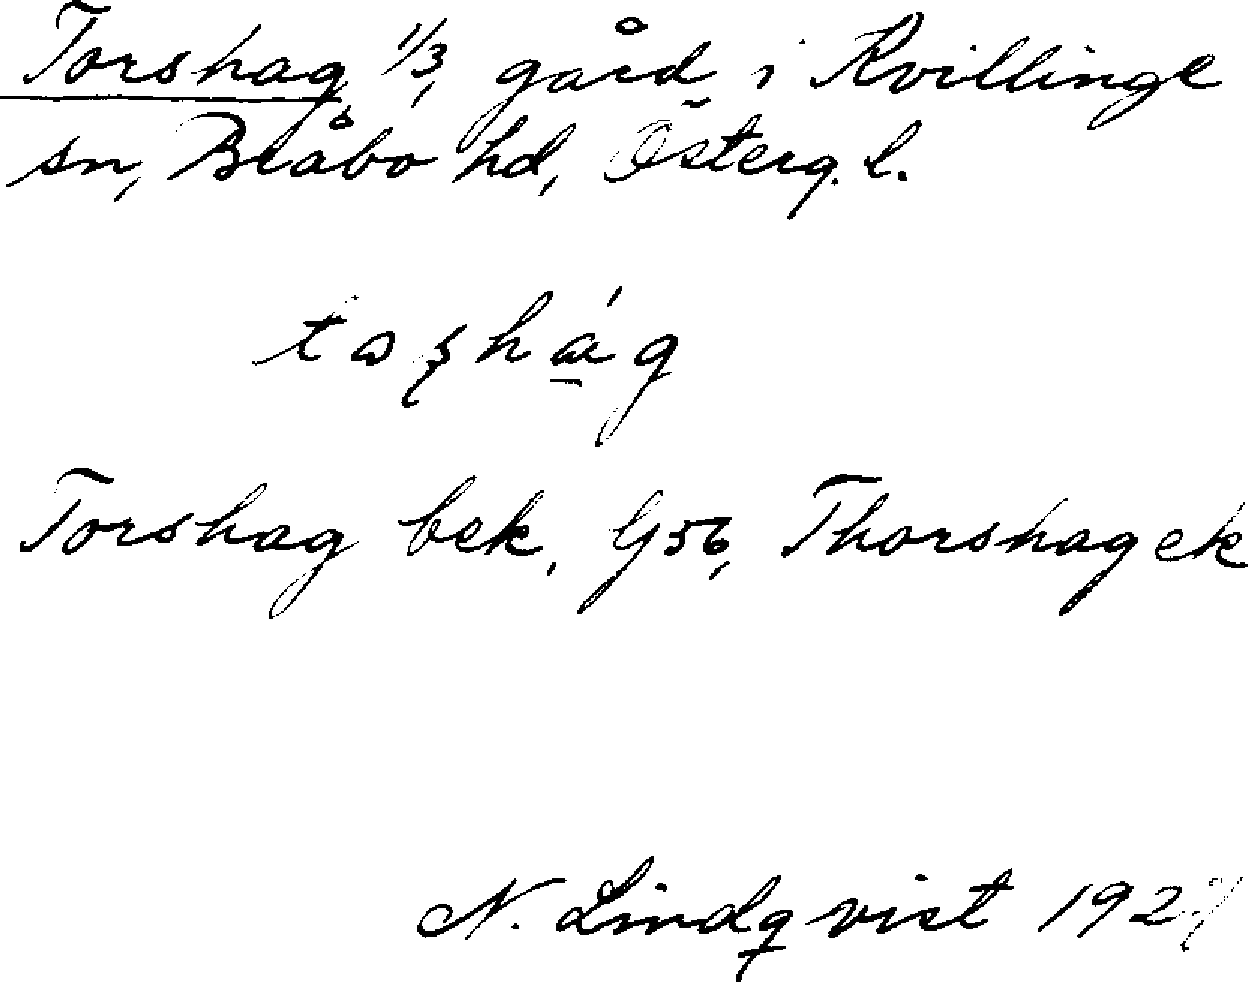 Torshag 1/3, gård i Kvillinge
sn, Bråbo hd, Österg. l.
Torshag bek, G56, Thorshag ek
N. Lindqvist 1927